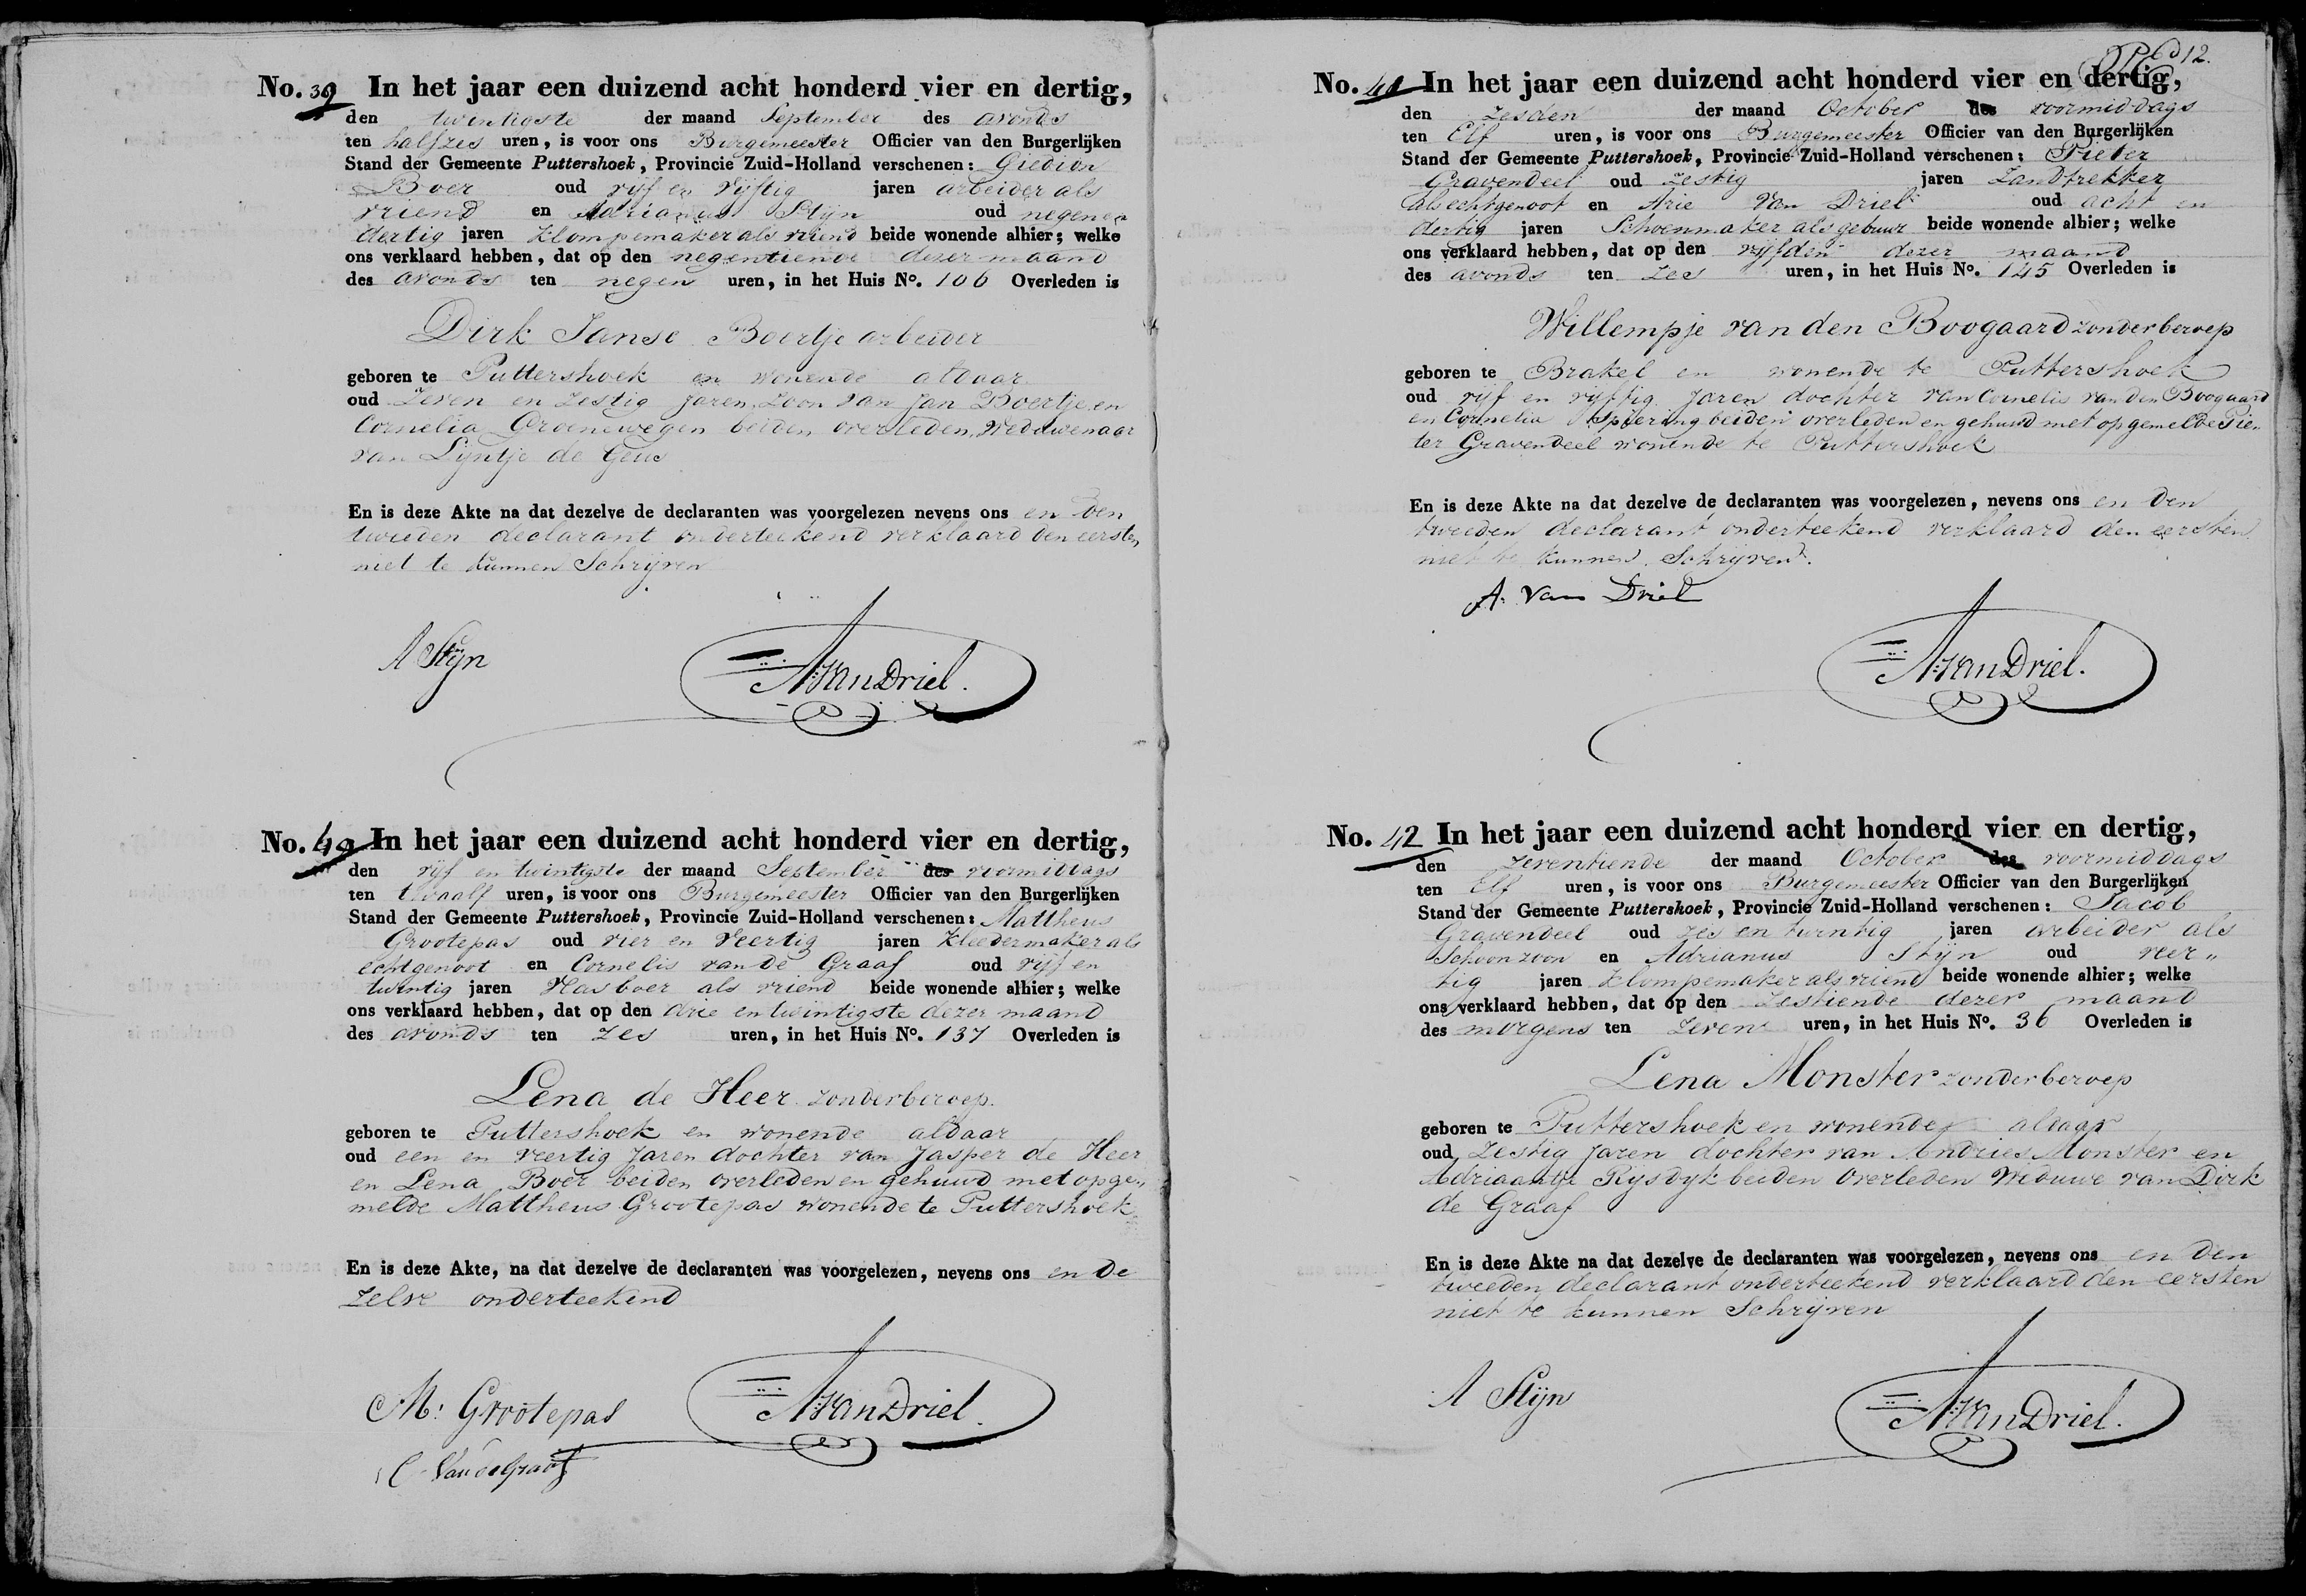 No. 39 In het jaar een duizend acht honderd vier en dertig,
den twintigste der maand September des avonds
ten halfzes uren, is voor ons Burgemeester Officier van den Burgerlijken
Stand der Gemeente Puttershoek, Provincie Zuid-Holland verschenen: Giedion
Boer oud vijf en vijftig jaren arbeider als
vriend en Adrianus Stijn oud negenen
dertig jaren klompemaker als vriend beide wonende alhier; welke
ons verklaard hebben, dat op den negentiende dezer maand
des avonds ten negen uren, in het Huis No. 106 Overleden is
Dirk Janse Boertje arbeider
geboren te Puttershoek en wonende aldaar
oud Zeven en Zestig Jaren, Zoon van Jan Boertje en
Cornelia Groenewegen beiden overleden, Weduwenaar
van Lijntje de Geus
En is deze Akte na dat dezelve de declaranten was voorgelezen nevens ons en den
tweeden declarant onderteekend verklaard den eersten
niet te kunnen Schrijven
A Stijn
A: Van Driel.
No. 40 In het jaar een duizend acht honderd vier en dertig,
den vijf en twintigste der maand September des voormiddags
ten twaalf uren, is voor ons Burgemeester Officier van den Burgerlijken
Stand der Gemeente Puttershoek, Provincie Zuid-Holland verschenen: Mattheus
Grootepas oud vier en Veertig jaren Kleedermaker als
echtgenoot en Cornelis van de Graaf oud vijf en
twintig jaren Vlasboer als vriend beide wonende alhier; welke
ons verklaard hebben, dat op den drie en twintigste dezer maand
des avonds ten zes uren, in het Huis No. 137 Overleden is
Lena de Heer zonder beroep.
geboren te Puttershoek en wonende aldaar
oud een en veertig Jaren dochter van Jasper de Heer
en Lena Boer beiden overleden en gehuwd met opge„
melde Mattheus Grootepas wonende te Puttershoek
En is deze Akte, na dat dezelve de declaranten was voorgelezen, nevens ons en de
zelve onderteekend
M: Grootepas
A: Van Driel.
C Van de Graaf
12.
No. 41 In het jaar een duizend acht honderd vier en dertig,
den Zesden der maand October des voormiddags
ten Elf uren, is voor ons Burgemeester Officier van den Burgerlijken
Stand der Gemeente Puttershoek, Provincie Zuid-Holland verschenen: Pieter
Gravendeel oud Zestig jaren Zandtrekker
als echtgenoot en Arie Van Driel oud acht en
dertig jaren Schoenmaker als gebuur beide wonende alhier; welke
ons verklaard hebben, dat op den vijfden dezer maand
des avonds ten Zes uren, in het Huis No. 145 Overleden is
Willempje van den Boogaard zonder beroep
geboren te Brakel en wonende te Puttershoek
oud vijf en vijftig Jaren dochter van Cornelis van den Boogaard
en Cornelia Spiering beiden overleden en gehuwd met opgemelde Pie„
ter Gravendeel wonende te Puttershoek
En is deze Akte na dat dezelve de declaranten was voorgelezen, nevens ons en den
tweeden declarant onderteekend verklaard den eersten
niet te kunnen Schrijven.
A. van Driel
A: Van Driel.
No. 42 In het jaar een duizend acht honderd vier en dertig,
den zeventiende der maand October des voormiddags
ten Elf uren, is voor ons Burgemeester Officier van den Burgerlijken
Stand der Gemeente Puttershoek, Provincie Zuid-Holland verschenen: Jacob
Gravendeel oud zes en twintig jaren arbeider als
Schoonzoon en Adrianus Stijn oud veer„
tig jaren klompemaker als vriend beide wonende alhier; welke
ons verklaard hebben, dat op den Zestiende dezer maand
des morgens ten Zeven uren, in het Huis No. 36 Overleden is
Lena Monster zonder beroep
geboren te Puttershoek en wonende aldaar
oud Zestig Jaren dochter van Andries Monster en
Adriaantje Rijsdijk beiden Overleden Weduwe van Dirk
de Graaf
En is deze Akte na dat dezelve de declaranten was voorgelezen, nevens ons en den
tweeden declarant onderteekend verklaard den eersten
niet te kunnen Schrijven
A Stijn
A: Van Driel.